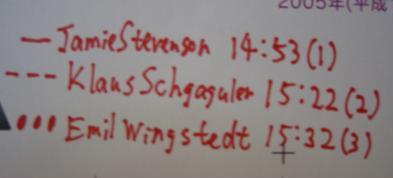 2005年(平成
— JamieStevenson 14:53(1)
--- Klaus Schgaguler 15:22(2)
••• Emil Wingstedt 15:32(3)